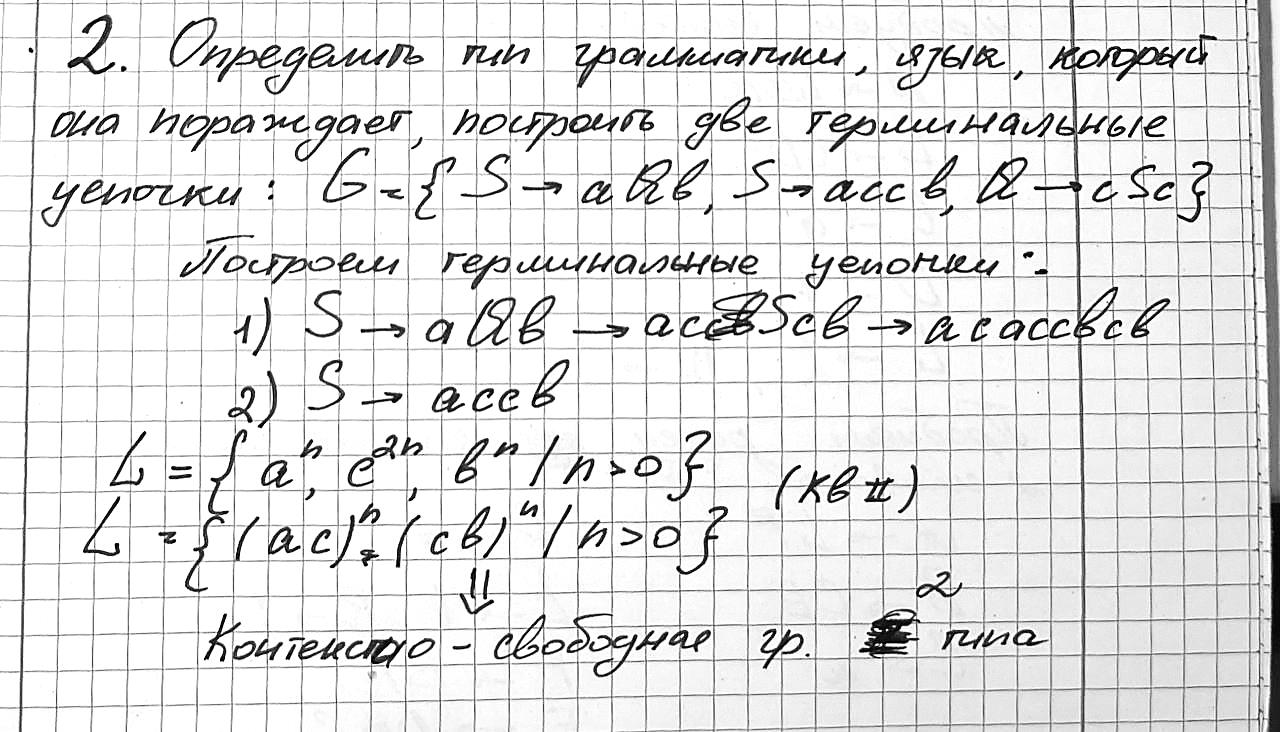 2. Определить тип грамматики, язык, который
она пораждает, построить две терминальные
цепочки: G = { S → aQb, S → accb, Q → cSc}
Построем терминальные цепочки:
1) S → aQb → acScb → acaccbcb
2) S → accb
L = { aⁿ, c²ⁿ, bⁿ / n > 0 } (КВ II)
L = { (ac)ⁿ = (cb)ⁿ / n > 0 }
⇓
Контекстно - свободная гр. 2 типа